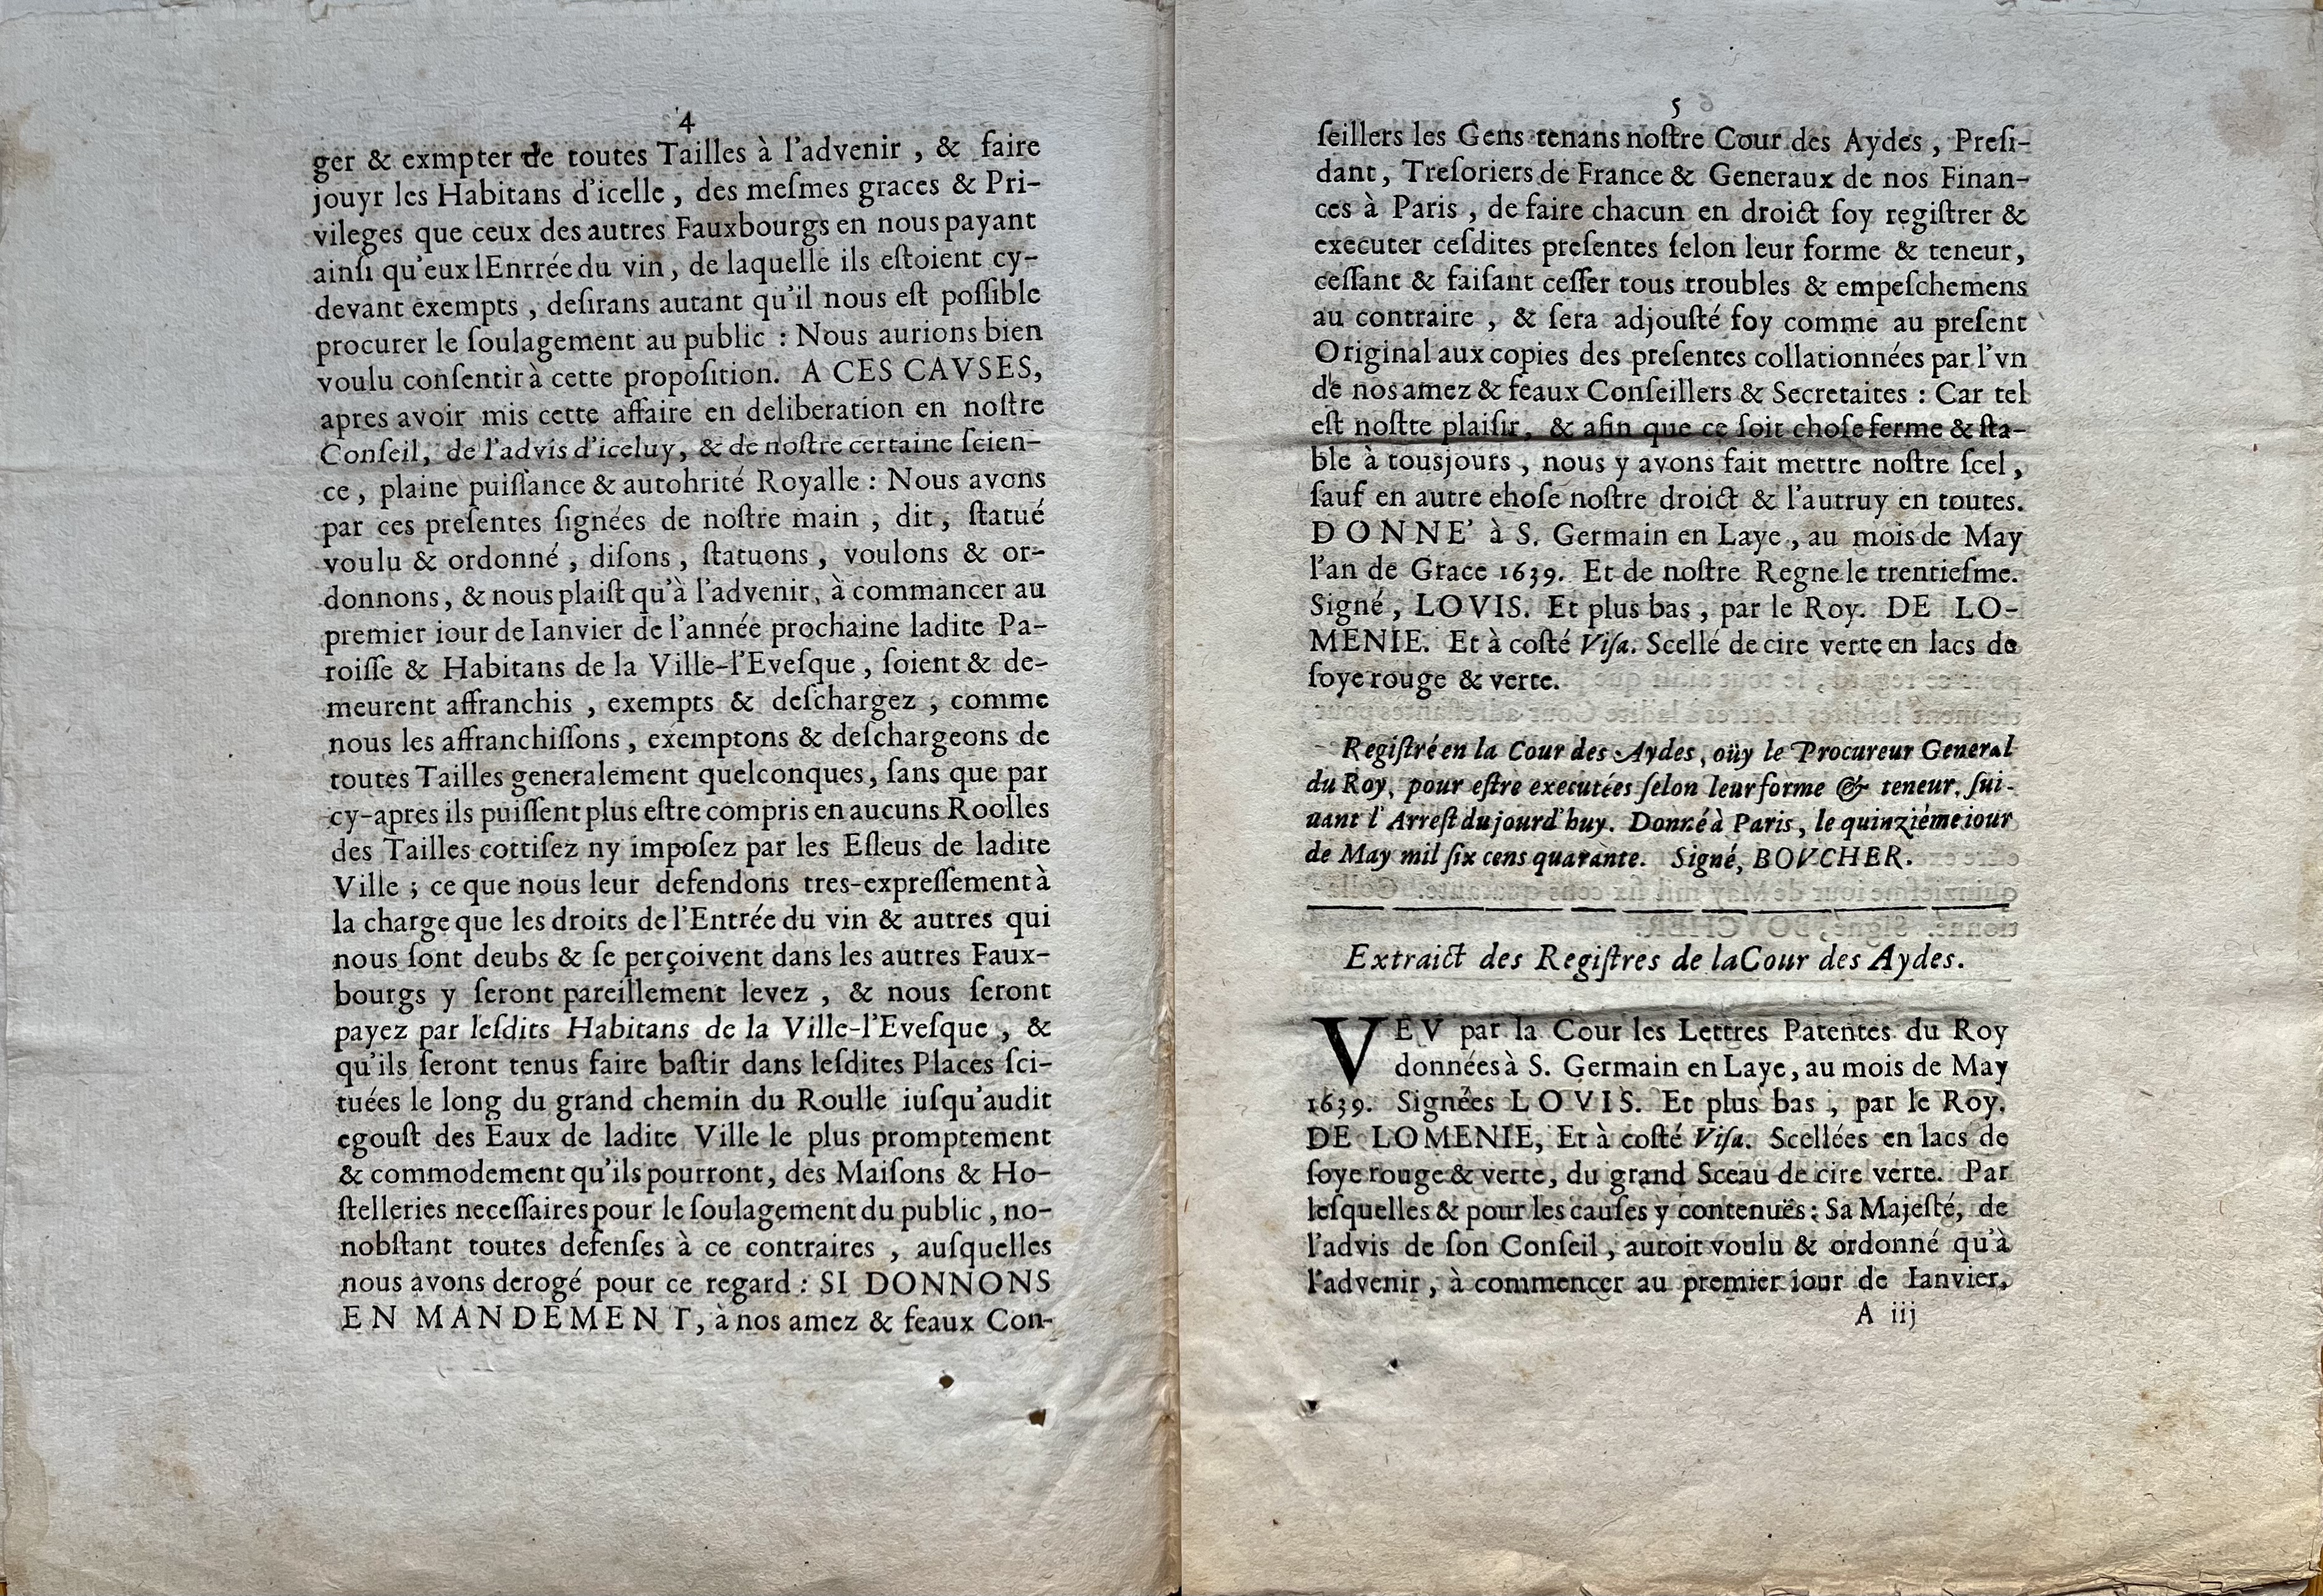 4
ger & exmpter de toutes Tailles à l'advenir , & faire
jouyr les Habitans d'icelle , des meſmes graces & Pri-
vileges que ceux des autres Fauxbourgs en nous payant
ainſi qu'eux lEnrrée du vin , de laquelle ils eſtoient cy-
devant exempts , deſirans autant qu'il nous eſt poſſible
procurer le ſoulagement au public : Nous aurions bien
voulu conſentir à cette propoſition. A CES CAVSES,
apres avoir mis cette affaire en deliberation en noſtre
Conſeil, de l'advis d'iceluy, & de noſtre certaine ſcien-
ce , plaine puiſſance & autohrité Royalle : Nous avons
par ces preſentes ſignées de noſtre main , dit , ſtatué
voulu & ordonné , diſons , ſtatuons , voulons & or-
donnons, & nous plaiſt qu'à l'advenir, à commancer au
premier iour de Ianvier de l'année prochaine ladite Pa-
roiſſe & Habitans de la Ville-l'Eveſque , ſoient & de-
meurent affranchis , exempts & deſchargez , comme
nous les affranchiſſons , exemptons & deſchargeons de
toutes Tailles generalement quelconques, ſans que par
cy-apres ils puiſſent plus eſtre compris en aucuns Roolles
des Tailles cottiſez ny impoſez par les Eſleus de ladite
Ville ; ce que nous leur defendons tres-expreſſement à
la charge que les droits de l'Entrée du vin & autres qui
nous ſont deubs & ſe perçoivent dans les autres Faux-
bourgs y ſeront pareillement levez , & nous ſeront
payez par leſdits Habitans de la Ville-l'Eveſque , &
qu'ils ſeront tenus faire baſtir dans leſdites Places ſci-
tuées le long du grand chemin du Roulle iuſqu'audit
egouſt des Eaux de ladite Ville le plus promptement
& commodement qu'ils pourront, des Maiſons & Ho-
ſtelleries neceſſaires pour le ſoulagement du public , no-
nobſtant toutes defenſes à ce contraires , auſquelles
nous avons derogé pour ce regard : SI DONNONS
EN MANDEMENT, à nos amez & feaux Con-
5
ſeillers les Gens tenans noſtre Cour des Aydes , Preſi-
dant , Treſoriers de France & Generaux de nos Finan-
ces à Paris , de faire chacun en droict ſoy regiſtrer &
executer ceſdites preſentes ſelon leur forme & teneur,
ceſſant & faiſant ceſſer tous troubles & empeſchemens
au contraire , & ſera adjouſté foy comme au preſent
Original aux copies des preſentes collationnées par l'vn
de nos amez & feaux Conſeillers & Secretaites : Car tel
eſt noſtte plaiſir, & afin que ce ſoit choſe ferme & ſta-
ble à tousjours , nous y avons fait mettre noſtre ſcel ,
ſauf en autre ehoſe noſtre droict & l'autruy en toutes.
DONNE' à S. Germain en Laye , au mois de May
l'an de Grace 1639. Et de noſtre Regne le trentieſme.
Signé , LOVIS. Et plus bas , par le Roy. DE LO-
MENIE. Et à coſté Viſa. Scellé de cire verte en lacs de
ſoye rouge & verte.
Regiſtré en la Cour des Aydes, oüy le Procureur General
du Roy, pour eſtre executées ſelon leur forme & teneur, ſui-
uant l'Arreſt du jourd'huy. Donné à Paris, le quinziéme iour
de May mil ſix cens quarante. Signé, BOVCHER.
Extraict des Regiſtres de la Cour des Aydes.
VEV par la Cour les Lettres Patentes du Roy
données à S. Germain en Laye, au mois de May
1639. Signées LOVIS. Et plus bas , par le Roy.
DE LOMENIE, Et à coſté Viſa. Scellées en lacs de
ſoye rouge & verte, du grand Sceau de cire verte. Par
leſquelles & pour les cauſes y contenuës : Sa Majeſté, de
l'advis de ſon Conſeil , auroit voulu & ordonné qu'à
l'advenir , à commencer au premier iour de Ianvier,
A iij